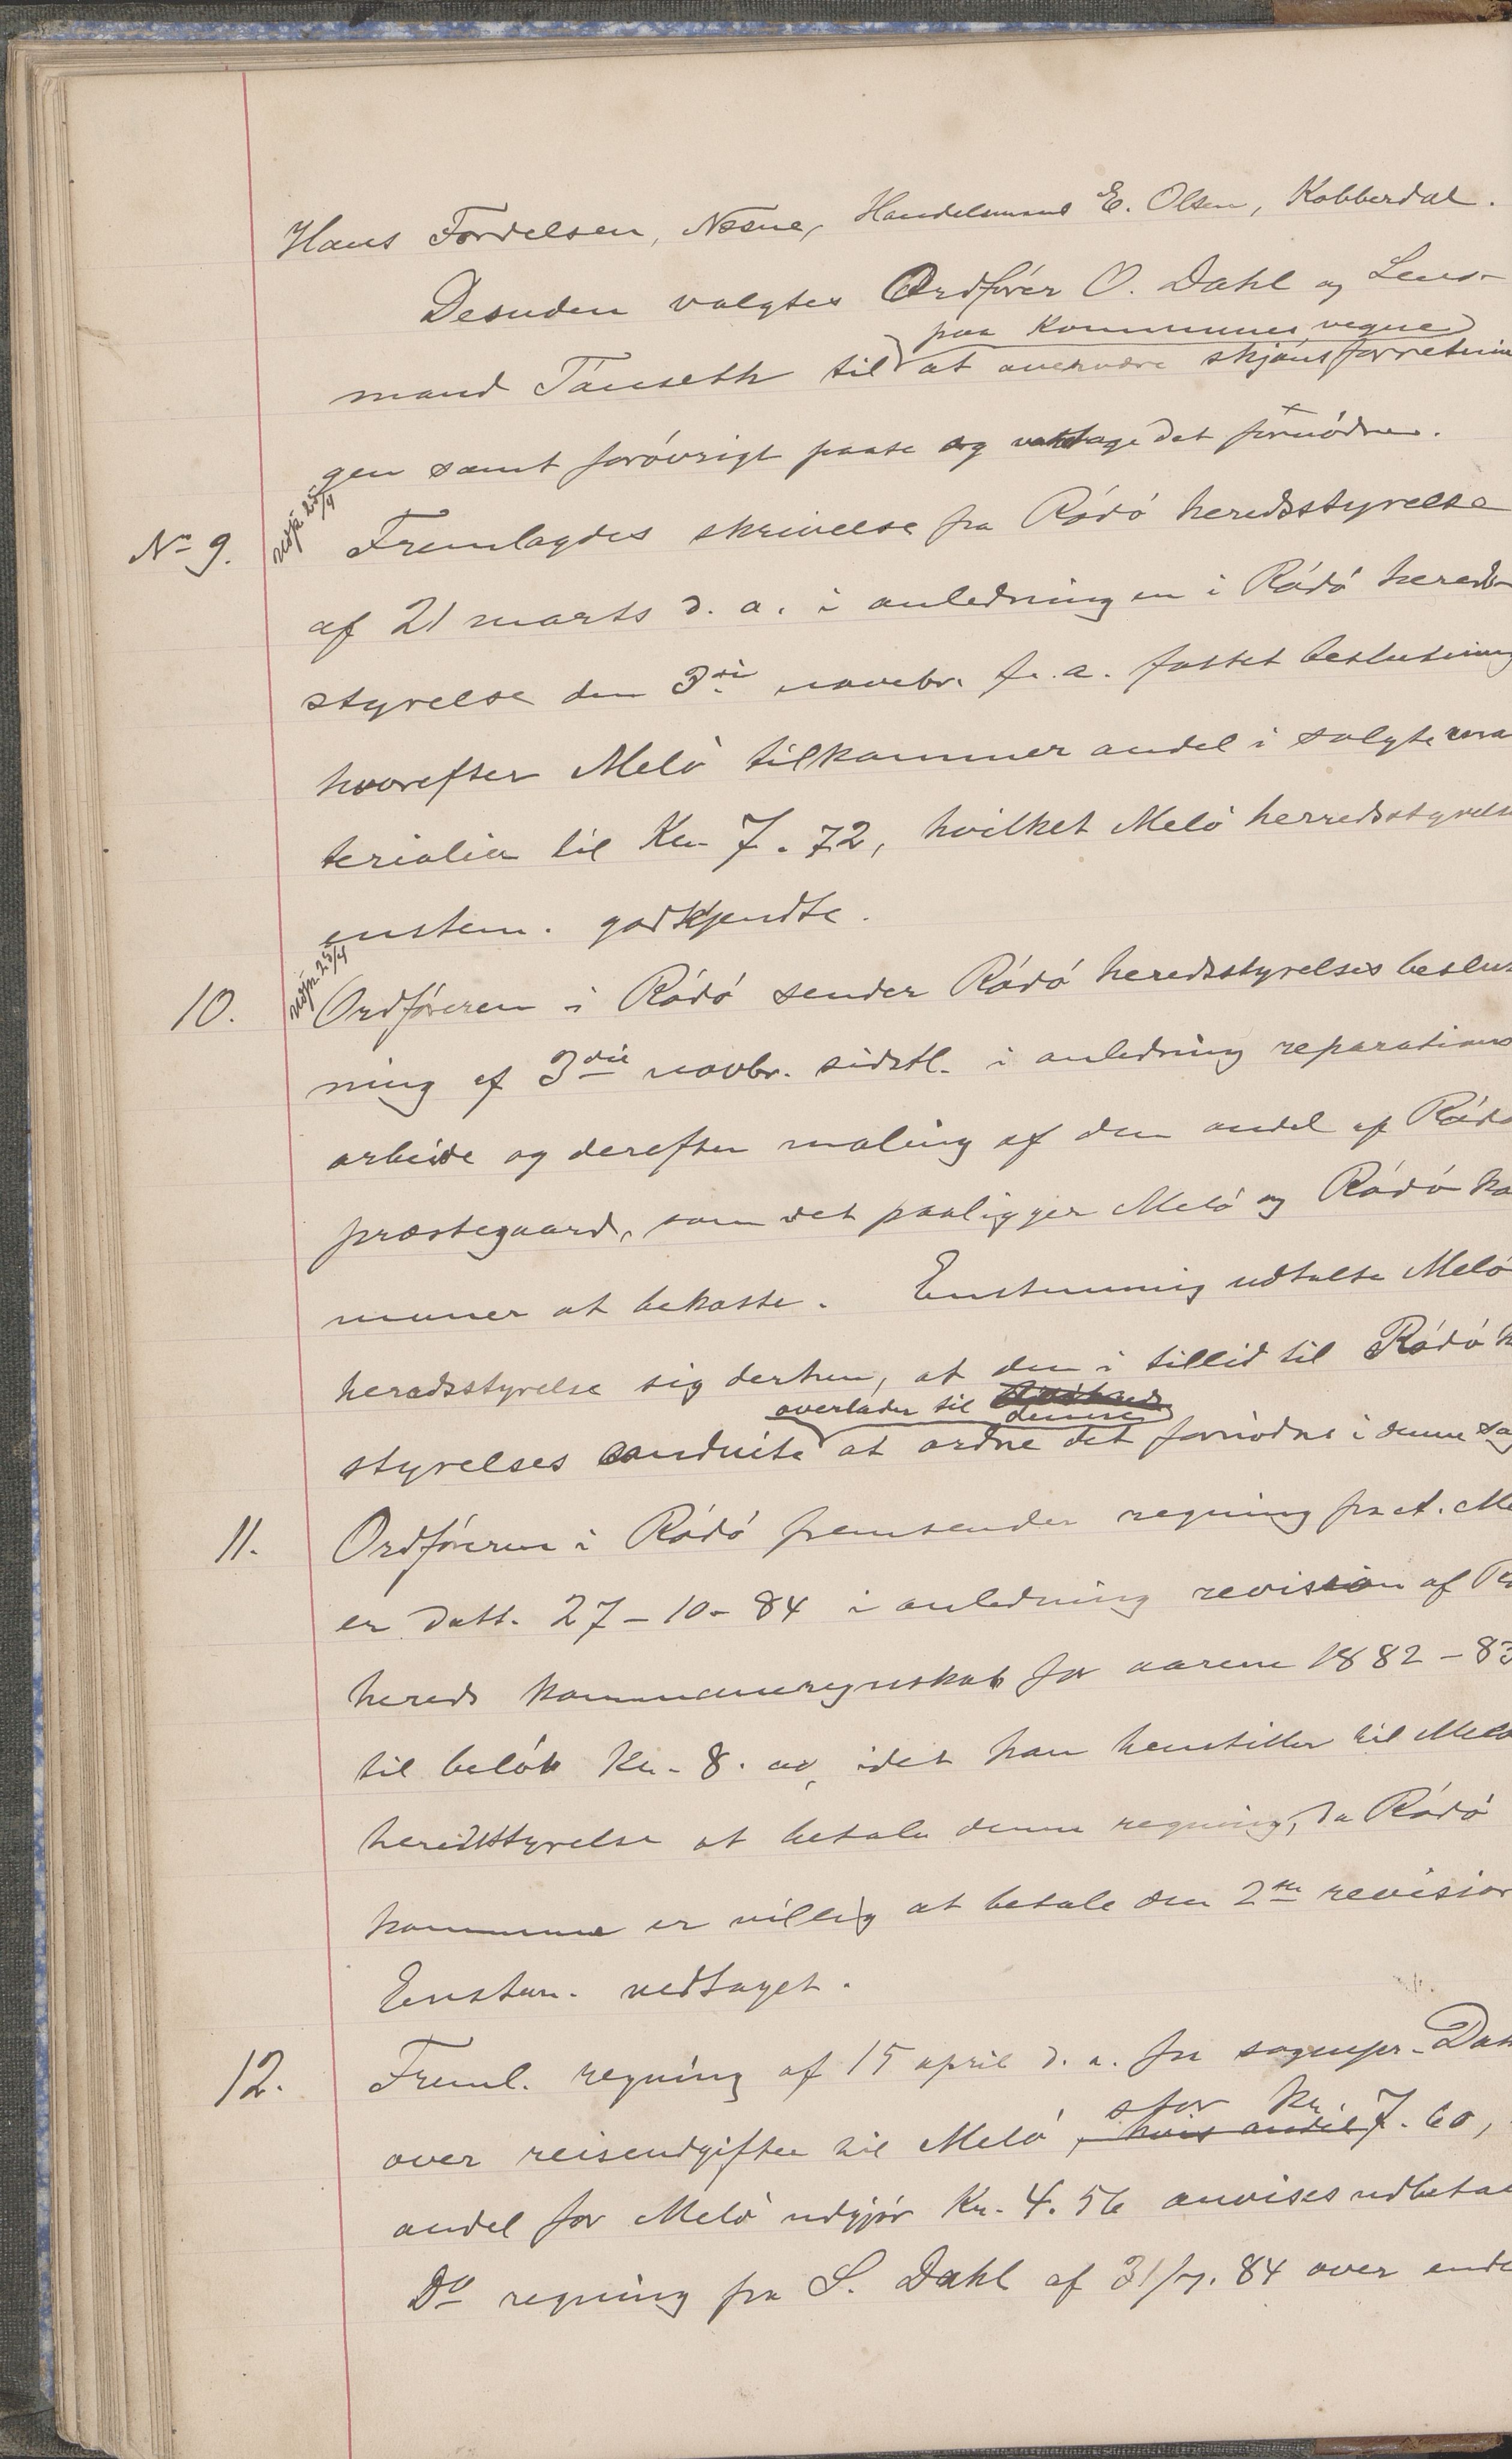 Hans Fordelsen, Nesne, Handelsmand E. Olsen, Kobberdal.
Desuden valgtes Ordfører O. Dahl og Lens-
paa Kommunes vegne
mand Tanseth til at overvære skjønsforretnin
gen samt forøvrigt paase og vedtage det fornødne.
No 9. Fremlagdes skrivelse fra Rödö heredsstyrelse
udsk. 25/4
af 21 marts d. a. i anledning en i Rödö hereds-
styrelse den 3die novebr. f. a. fattet beslutning
hvorefter Melö tilkommer andel i solgte ma
terialier til Kr. 7.72, hvilket Melö herredsstyrelse
enstem. godkjendte.
udsk. 25/4
10. Ordföreren i Rödö sender Rödö heredsstyrelses beslut
ning af 3die novbr. sidstl. i anledning reparations
arbeide og derefter maling af den andel af Rödö
præstegaard, som det paaligger Melö og Rödö ko
muner at bekoste. Enstemmig udtalte Melö
heredsstyrelse sig derhen, at den i tillid til Rödö h
overlader til denne
styrelses conduite at ordne det fornödne i denne sag
11. Ordföreren i Rödö fremsender regning fra A. Me
er datt. 27-10-84 i anledning revision af R
hereds kommuneregnskab for aarene 1882-83
til belöb Kr. 8.00, idet han henstiller til Melö
heredsstyrelse at betale denne regning, da Rödö
kommune er villig at betale den 2den revision
Enstem. vedtaget.
12. Freml. regning af 15 april d. a. fra sognepr. Dah
stor Kr.
over reiseudgifter til Melö, hvis andel 7.60,
andel for Melö udgjör Kr. 4.56 anvises udbetal
Do regning fra S. Dahl af 31/7.84 over ende